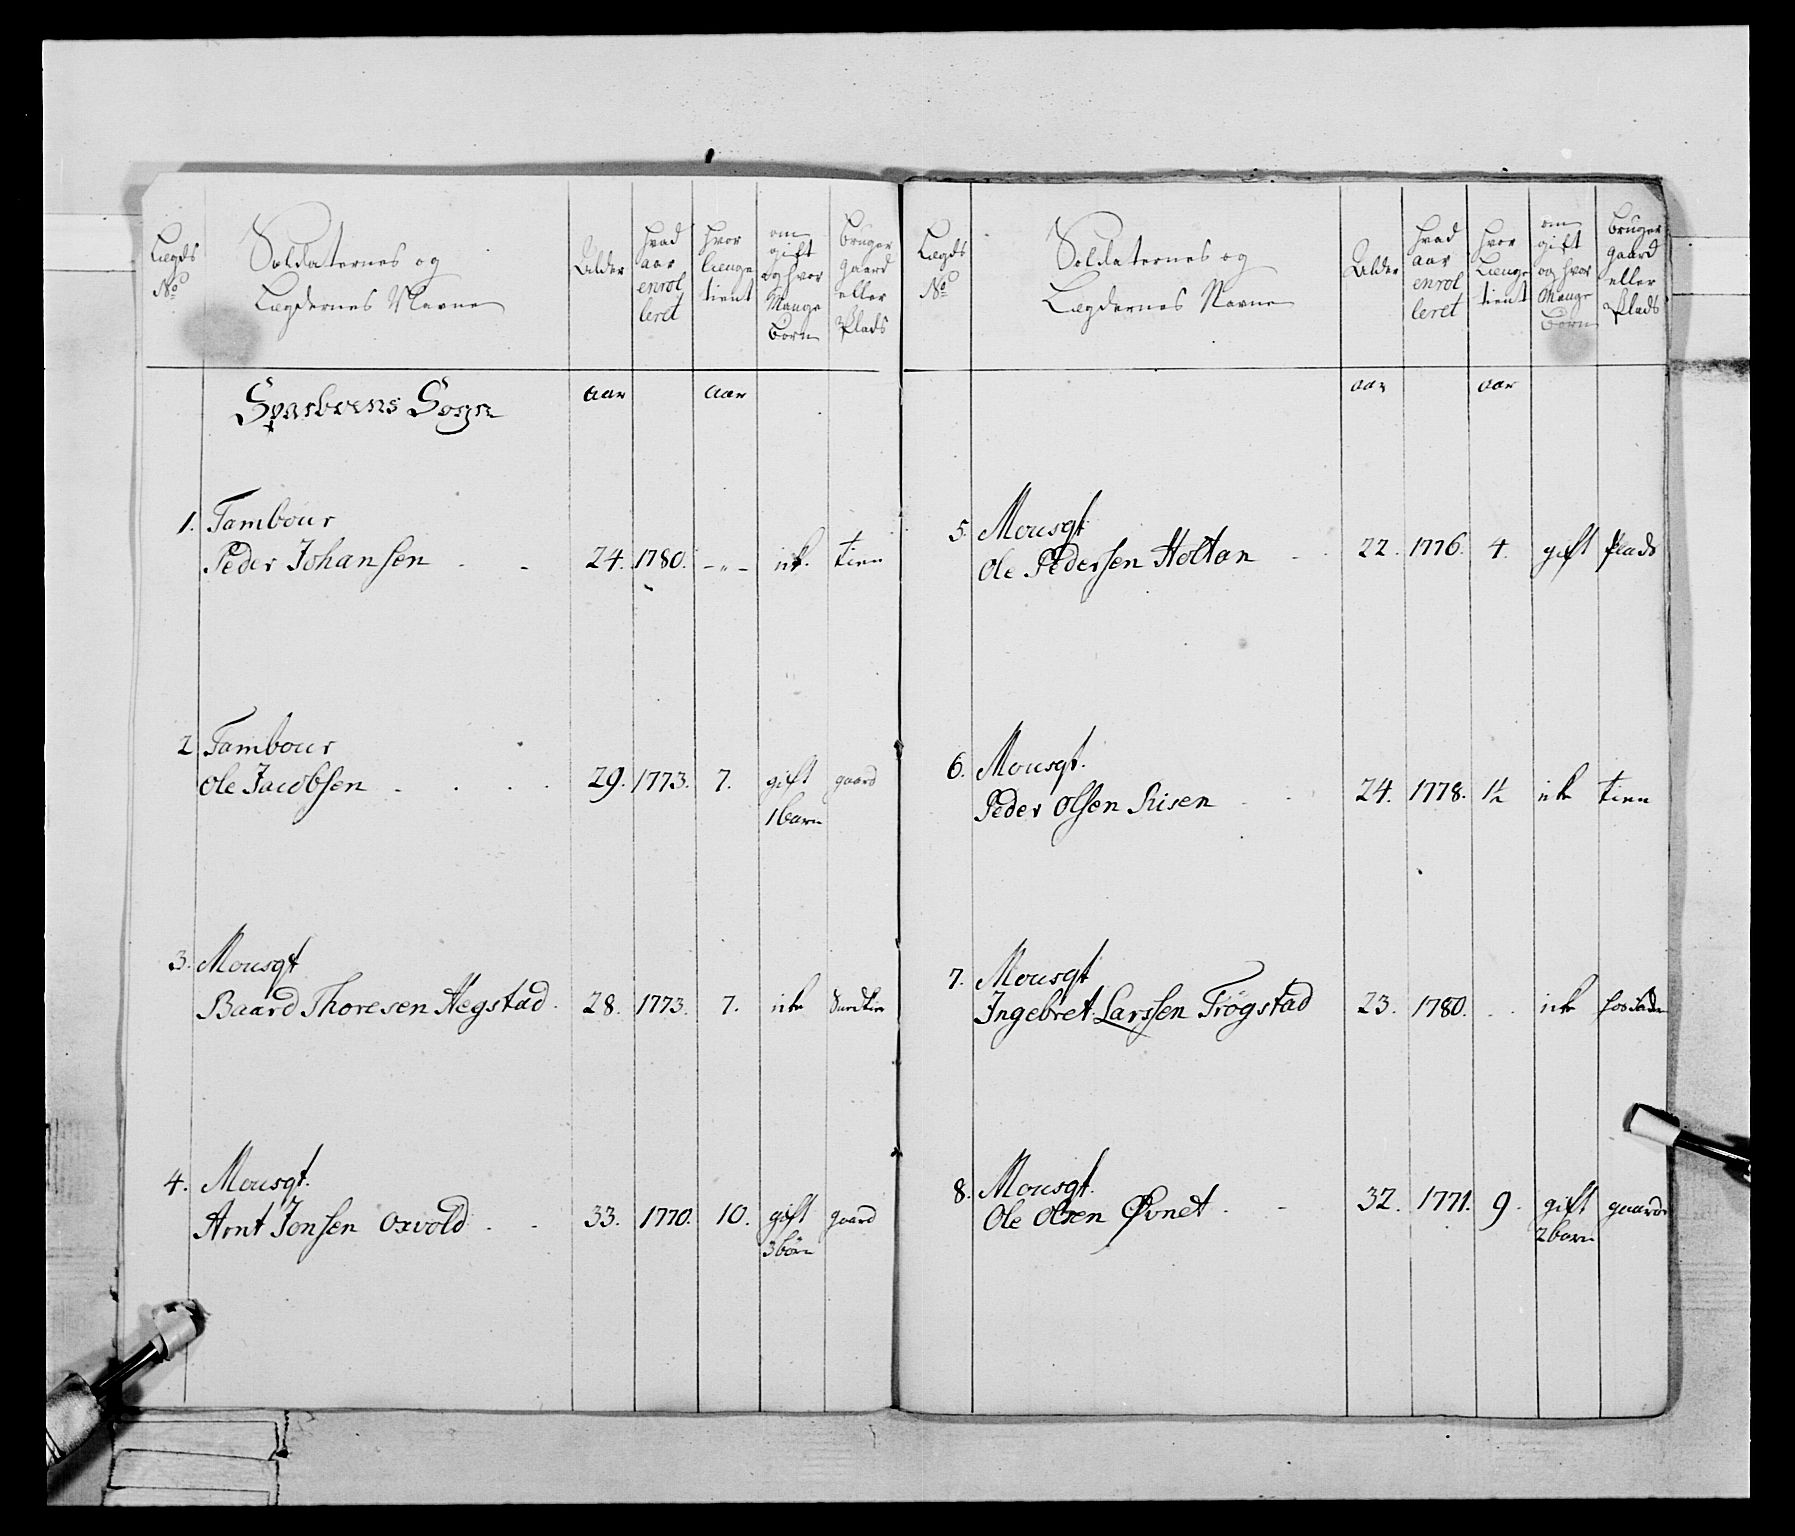 Lægds
No
Soldaternes og
Lægdernes Navne
Alder
hvad
aar
enrol
leret
hvor
længe
tient
om
gift
og hvor
Mange
børn
bruger
gaard
eller
Plads
Sparboens Sogn
aar
aar
1. Tambour
Peder Johansen - - 24. 1780. - " - ike. tien
2 Tambour
Ole Jacobsen - . . . 29. 1773. 7. gift gaard
1 barn
3. Mousqt
Baard Thoresen Hegstad. 28. 1773. 7. ike
4. Mousqt.
Arnt Jonsen Oxvold - - 33. 1770. 10. gift gaard
3 børn
Lægds
No
Soldaternes og
Lægdernes Navne
Alder
hvad
aar
enrol
leret
hvor
Længe
tient
om
gift
og hvor
Mange
børn
bruger
gaard
eller
Plads
aar
aar
5. Mousqt
Ole Pedersen Holtan - 22. 1776. 4. gift Plads
6. Mousqt.
Peder Olsen Risen - - 24. 1778. 1½ ike tien
7. Mousqt
Ingebret Larssen Trögstad 23. 1780. . . ike
8. Mousqt.
Ole Olsen Øvnet . - 32. 1771. 9. gift gaard
2 barn